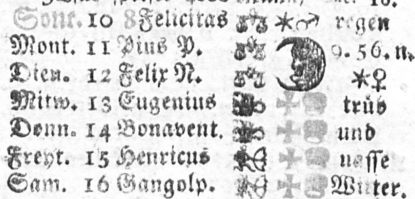 Sont. 10 8 Felicitas ⚹♂ regen
Mont. 11 Pius P. 9. 56. n.
Dien. 12 Felix N. ⚹♀
Mitw. 13 Eugenius trüb
Donn. 14 Bonavent. und
Freyt. 15 Henricus nasse
Sam. 16 Gangolp. Witter.